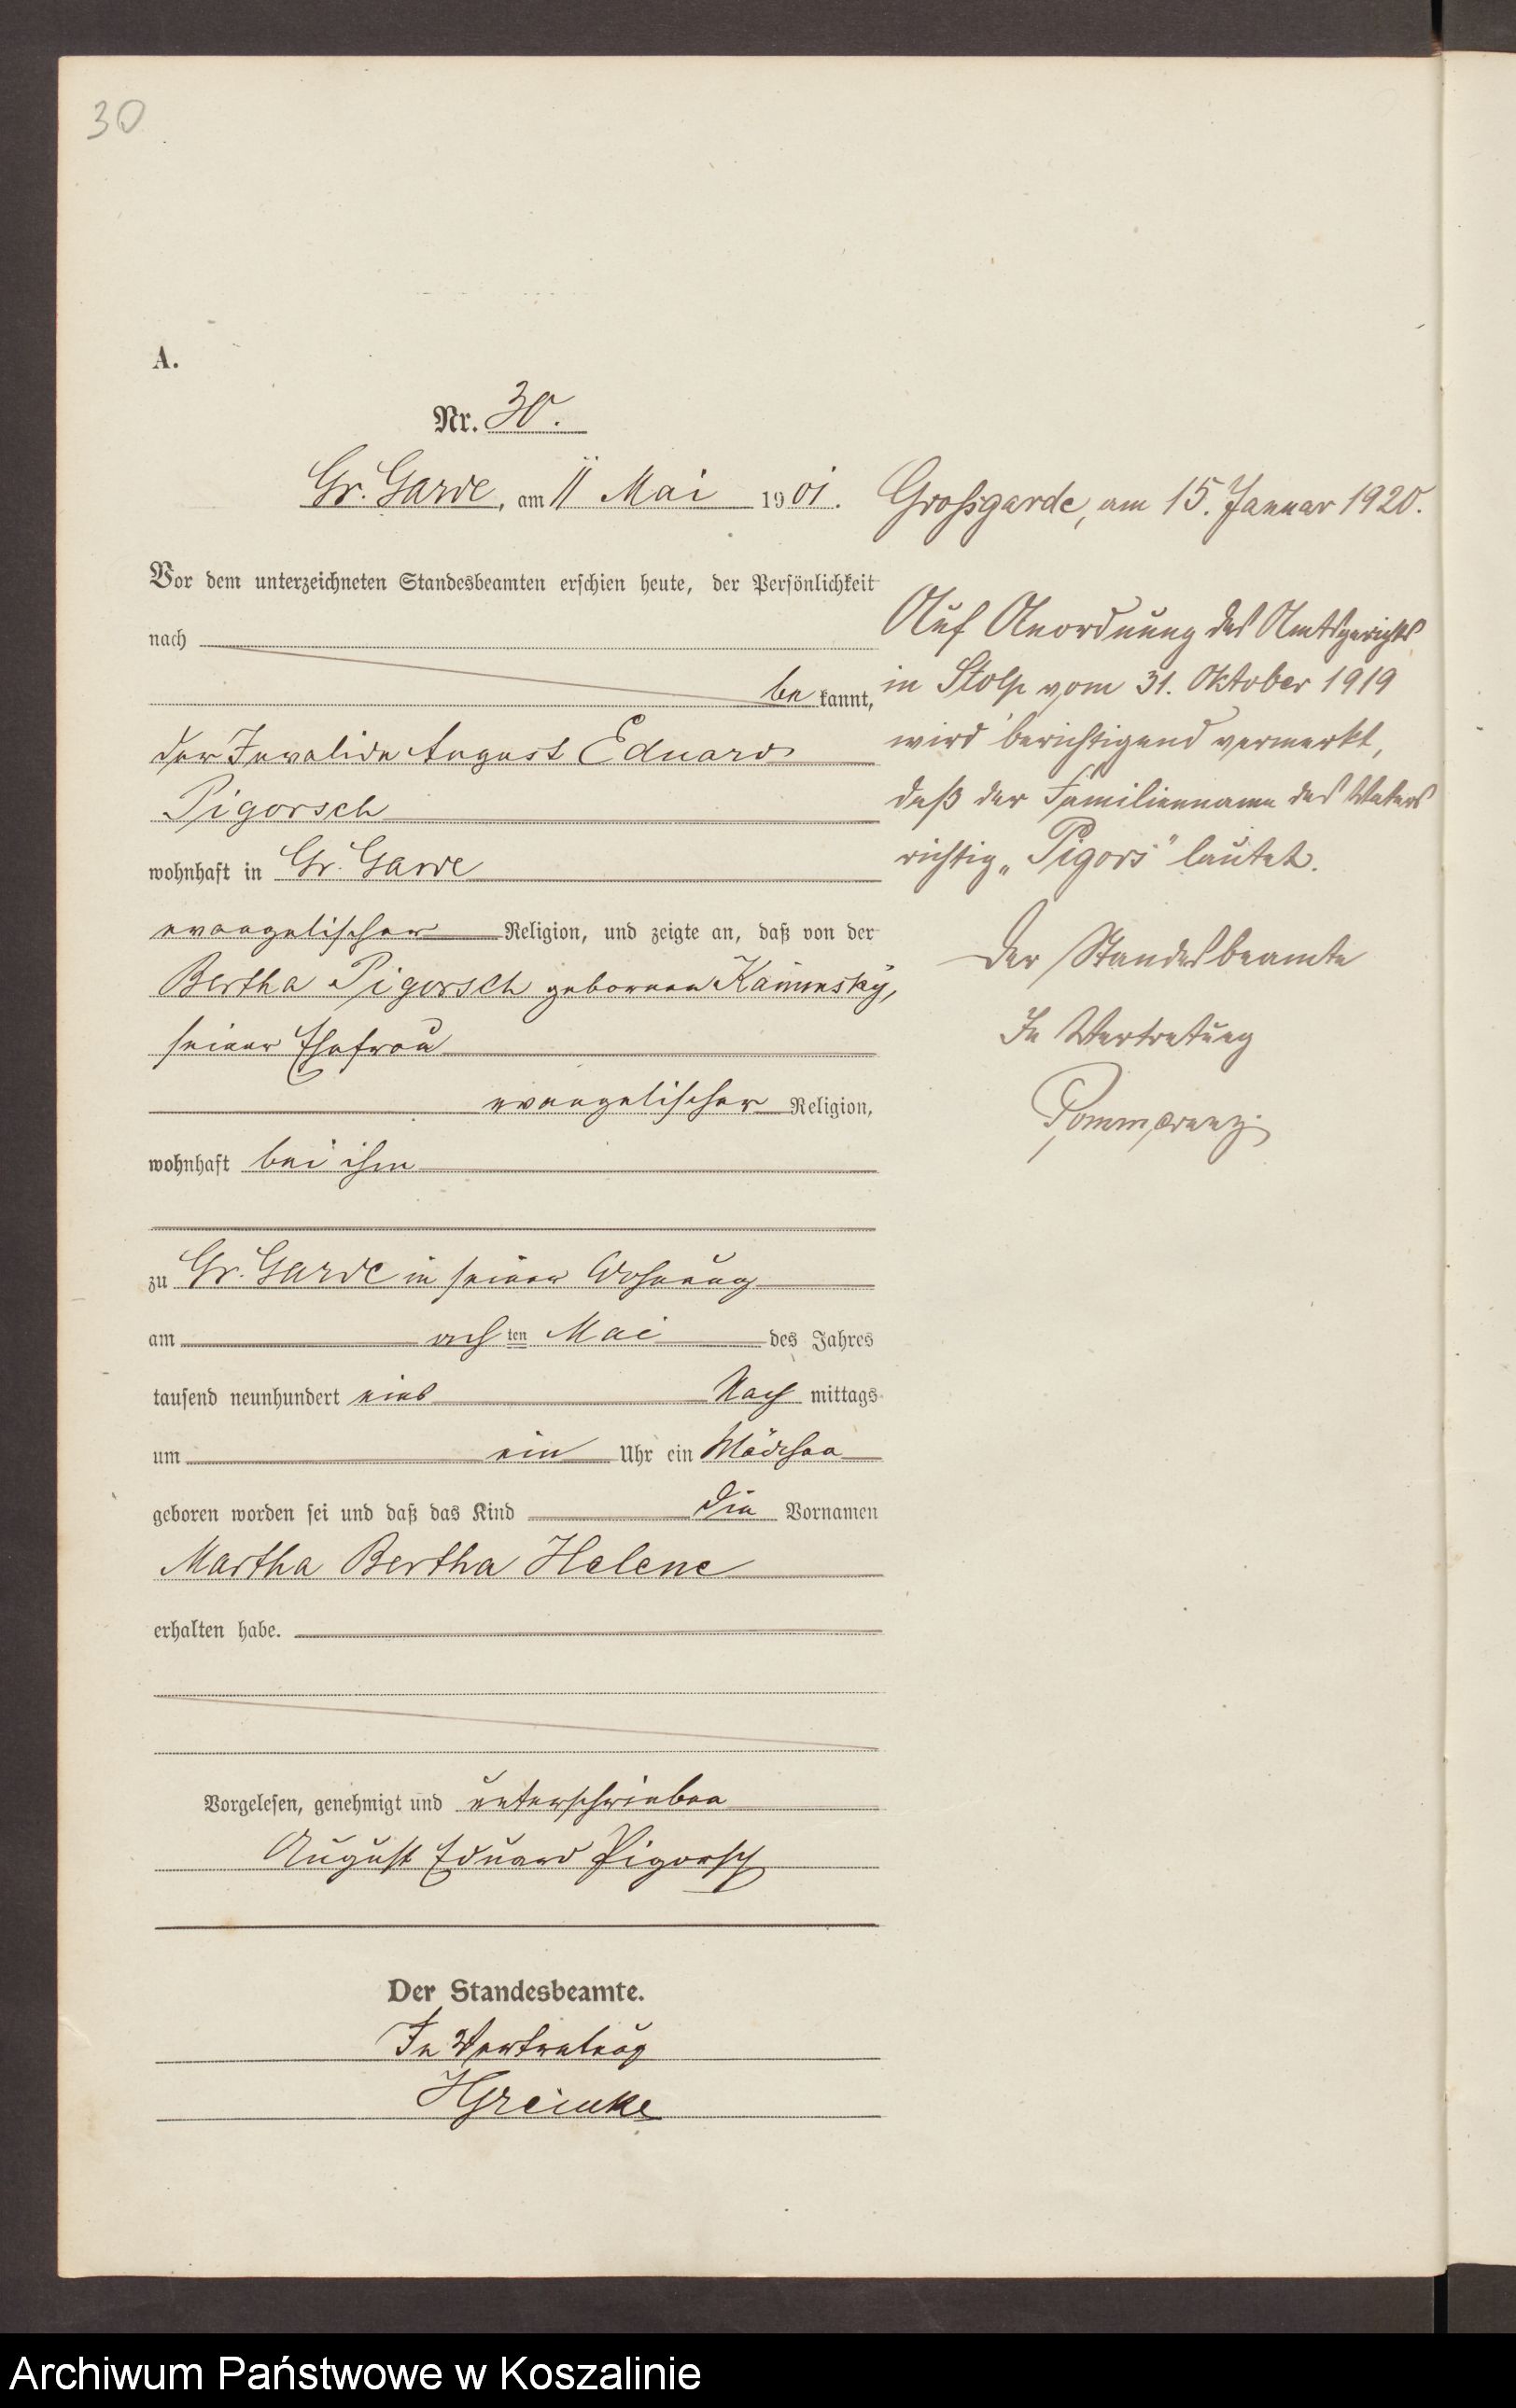 30
A.
Nr. 30.
Gr. Garde, am 11 Mai 1901.
Vor dem unterzeichneten Standesbeamten erschien heute, der Persönlichkeit
nach
bekannt,
der Invalide August Eduard
Pigorsch
wohnhaft in Gr. Garde
evangelischer Religion, und zeigte an, daß von der
Bertha Pigorsch geborenen Kaminsky,
seiner Ehefrau
evangelischer Religion,
wohnhaft bei ihm
zu Gr. Garde in seiner Wohnung
am achten Mai des Jahres
tausend neunhundert eins Nachmittags
um ein Uhr ein Mädchen
geboren worden sei und daß das Kind die Vornamen
Martha Bertha Helene
erhalten habe.
Vorgelesen, genehmigt und unterschrieben
August Eduard Pigorsch
Der Standesbeamte.
In Vertretung
Grossgarde, am 15. Januar 1920.
Auf Anordnung des Amtsgerichts
in Stolp vom 31. Oktober 1919
wird berichtigend vermerkt,
daß der Familienname des Vaters
richtig „Pigors" lautet.
Der Standesbeamte
In Vertretung
Archiwum Państwowe w Koszalinie